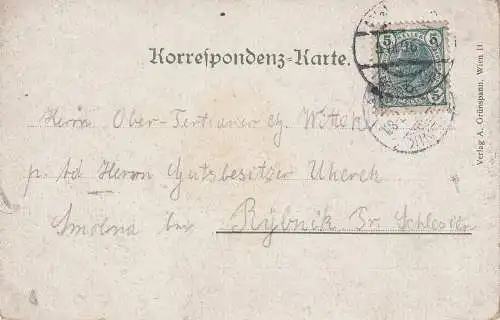 Korrespondenz-Karte.
5 5
5
Herrn Ober-Tertianer
p. Ad Herrn Gutsbesitzer Ucherek
Smolna bei Rybnik Pr. Schlesien
Verlag A. Grünspann, Wien II